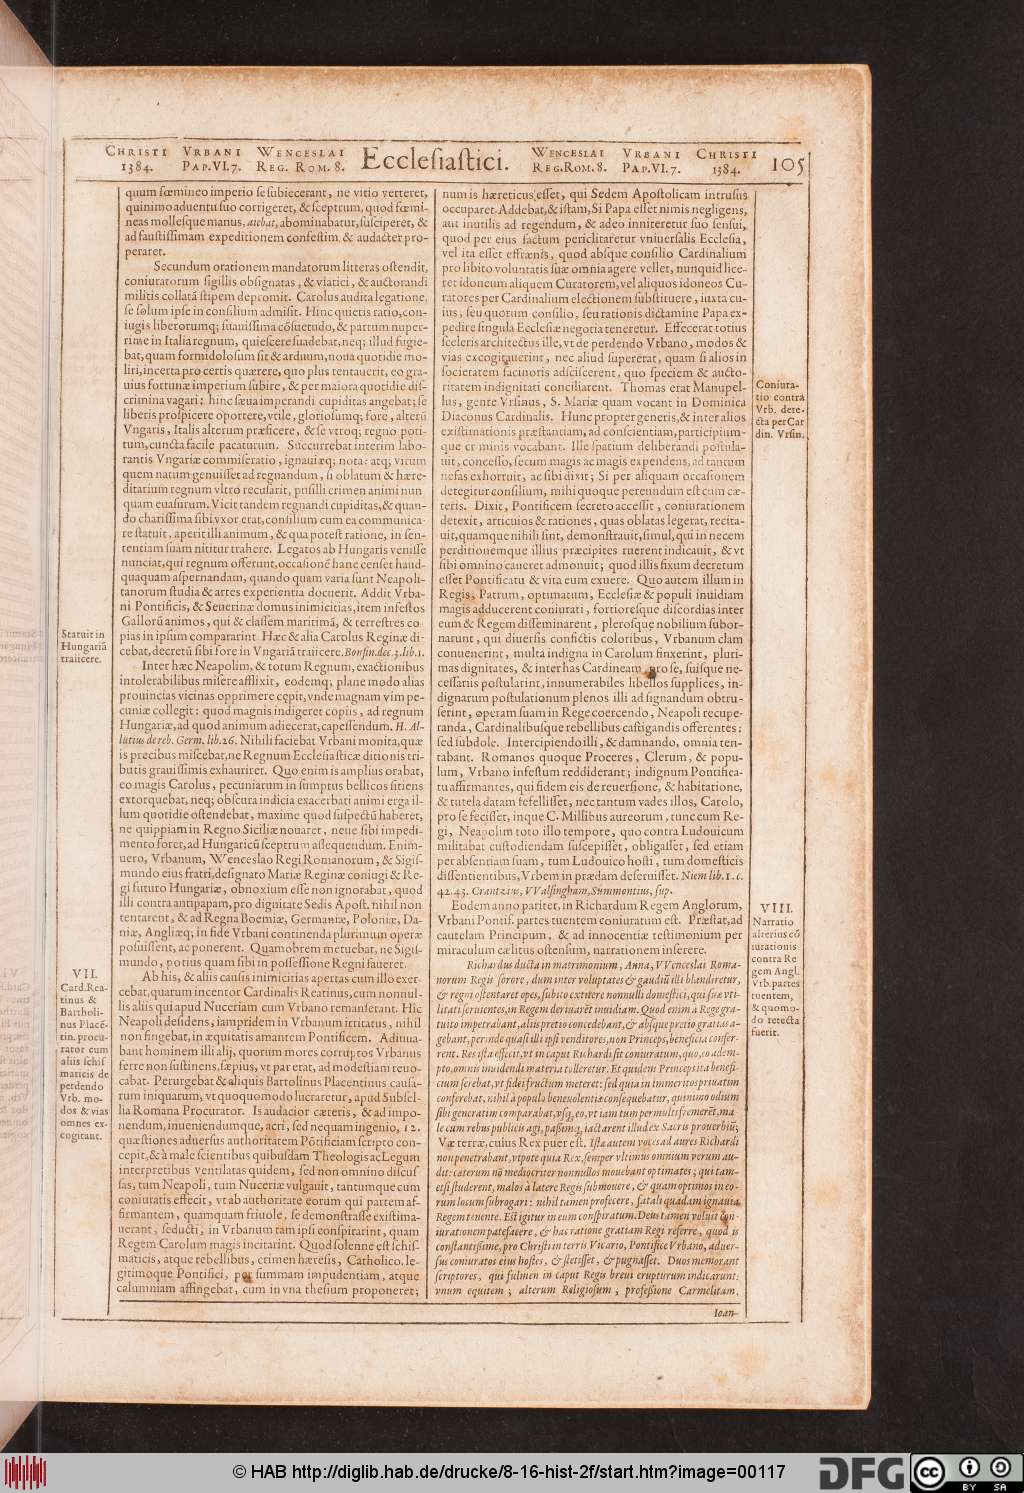 CHRISTI VRBANI WENCESLAI Ecclesiastici. WENCESLAI VRBANI CHRISTI 105
1384. PAP. VI. 7. REG. ROM. 8. REG. ROM. 8. PAP. VI. 7. 1384.
quum fœmineo imperio se subiecerant, ne vitio verteret,
quinimo aduentu suo corrigeret, & sceptrum, quod fœmi-
neas mollesque manus, aiebat, abominabatur, susciperet, &
ad faustissimam expeditionem confestim & audacter pro-
peraret.
Secundum orationem mandatorum litteras ostendit,
coniuratorum sigillis obsignatas, & viatici, & auctorandi
militis collatâ stipem depromit. Carolus audita legatione,
se solum ipse in consilium admisit. Hinc quietis ratio, con-
iugis liberorumq; suauissima cōsuetudo, & partum nuper-
rime in Italia regnum, quiescere suadebat, neq; illud fugie-
bat, quam formidolosum sit & arduum, noua quotidie mo-
liri, incerta pro certis quærere, quo plus tentauerit, eo gra-
uius fortunæ imperium subire, & per maiora quotidie dis-
crimina vagari: hinc sæua imperandi cupiditas angebat; se
liberis prospicere oportere, vtile, gloriosumq; fore, alterū
Vngaris, Italis alterum præficere, & se vtroq; regno poti-
tum, cuncta facile pacaturum. Succurrebat interim labo-
rantis Vngariæ commiseratio, ignauiæq; nota: atq; virum
quem natum genuisset ad regnandum, si oblatum & hære-
ditarium regnum vltro recusarit, pusilli crimen animi nun
quam euasurum. Vicit tandem regnandi cupiditas, & quan-
do charissima sibi vxor erat, consilium cum ea communica-
re statuit, aperit illi animum, & qua potest ratione, in sen-
tentiam suam nititur trahere. Legatos ab Hungaris venisse
nunciat, qui regnum offerunt, occasionē hanc censet haud-
quaquam aspernandam, quando quam varia sunt Neapoli-
tanorum studia & artes experientia docuerit. Addit Vrba-
ni Pontificis, & Seuerinæ domus inimicitias, item infestos
Gallorū animos, qui & classem maritimā, & terrestres co-
pias in ipsum compararint. Hæc & alia Carolus Reginæ di-
cebat, decretū sibi fore in Vngariā traiicere. Bonfin. dec. 3. lib. 1.
Inter hæc Neapolim, & totum Regnum, exactionibus
intolerabilibus misere afflixit, eodemq; plane modo alias
prouincias vicinas opprimere cępit, vnde magnam vim pe-
cuniæ collegit: quod magnis indigeret copiis, ad regnum
Hungariæ, ad quod animum adiecerat, capessendum. H. Al-
lutius de reb. Germ. lib. 26. Nihili faciebat Vrbani monita, quæ
is precibus miscebat, ne Regnum Ecclesiasticæ ditionis tri-
butis grauissimis exhauriret. Quo enim is amplius orabat,
eo magis Carolus, pecuniarum in sumptus bellicos sitiens
extorquebat, neq; obscura indicia exacerbati animi erga il-
lum quotidie ostendebat, maxime quod suspectū haberet,
ne quippiam in Regno Siciliæ nouaret, neue sibi impedi-
mento foret, ad Hungaricū sceptrum assequendum. Enim-
uero, Vrbanum, Wenceslao Regi Romanorum, & Sigis-
mundo eius fratri, designato Mariæ Reginæ coniugi & Re-
gi futuro Hungariæ, obnoxium esse non ignorabat, quod
illi contra antipapam, pro dignitate Sedis Apost. nihil non
tentarent, & ad Regna Boemiæ, Germaniæ, Poloniæ, Da-
niæ, Angliæq; in fide Vrbani continenda plurimum operæ
posuissent, ac ponerent. Quamobrem metuebat, ne Sigis-
mundo, potius quam sibi in possessione Regni faueret.
Ab his, & aliis causis inimicitias apertas cum illo exer-
cebat, quarum incentor Cardinalis Reatinus, cum nonnul-
lis aliis qui apud Nuceriam cum Vrbano remanserant. Hic
Neapoli desidens, iampridem in Vrbanum irritatus, nihil
non fingebat, in æquitatis amantem Pontificem. Adiuua-
bant hominem illi alij, quorum mores corruptos Vrbanus
ferre non sustinens, sæpius, vt par erat, ad modestiam reuo-
cabat. Perurgebat & aliquis Bartolinus Placentinus causa-
rum iniquarum, vt quoquomodo lucraretur, apud Subsel-
lia Romana Procurator. Is audacior cæteris, & ad impo-
nendum, inueniendumque, acri, sed nequam ingenio, 12.
quæstiones aduersus authoritatem Pōtificiam scripto con-
cepit, & à male scientibus quibusdam Theologis ac Legum
interpretibus ventilatas quidem, sed non omnino discus
sas, tum Neapoli, tum Nuceriæ vulgauit, tantumque cum
coniuratis effecit, vt ab authoritate eorum qui partem af-
firmantem, quamquam friuole, se demonstrasse existima-
uerant, seducti, in Vrbanum tam ipsi conspirarint, quam
Regem Carolum magis incitarint. Quod solenne est schis-
maticis, atque rebellibus, crimen hæresis, Catholico, le-
gitimoque Pontifici, per summam impudentiam, atque
calumniam affingebat, cum in vna thesium proponeret;
Statuit in
Hungariā
traiicere.
VII.
Card. Rea-
tinus &
Bartholi-
nus Placē-
tin. procu-
rator cum
aliis schis
maticis de
perdendo
Vrb. mo-
dos & vias
omnes ex-
cogitant.
num is hæreticus esset, qui Sedem Apostolicam intrusus
occuparet. Addebat, & istam, Si Papa esset nimis negligens,
aut inutilis ad regendum, & adeo inniteretur suo sensui,
quod per eius factum periclitaretur vniuersalis Ecclesia,
vel ita esset effrænis, quod absque consilio Cardinalium
pro libito voluntatis suæ omnia agere vellet, nunquid lice-
ret idoneum aliquem Curatorem, vel aliquos idoneos Cu-
ratores per Cardinalium electionem substituere, iuxta cu-
ius, seu quorum consilio, seu rationis dictamine Papa ex-
pedire singula Ecclesiæ negotia teneretur. Effecerat totius
sceleris architectus ille, vt de perdendo Vrbano, modos &
vias excogitauerint, nec aliud supererat, quam si alios in
societatem facinoris adsciscerent, quo speciem & aucto-
ritatem indignitati conciliarent. Thomas erat Manupel-
lus, gente Vrsinus, S. Mariæ quam vocant in Dominica
Diaconus Cardinalis. Hunc propter generis, & inter alios
existimationis præstantiam, ad conscientiam, participium-
que criminis vocabant. Ille spatium deliberandi postula-
uit, concesso, secum magis ac magis expendens, ad tantum
nefas exhorruit, ac sibi dixit; Si per aliquam occasionem
detegitur consilium, mihi quoque pereundum est cum cæ-
teris. Dixit, Pontificem secreto accessit, coniurationem
detexit, articulos & rationes, quas oblatas legerat, recita-
uit, quamque nihili sint, demonstrauit, simul, qui in necem
perditionemque illius præcipites ruerent indicauit, & vt
sibi omnino caueret admonuit; quod illis fixum decretum
esset Pontificatu & vita eum exuere. Quo autem illum in
Regis, Patrum, optimatum, Ecclesiæ & populi inuidiam
magis adducerent coniurati, fortioresque discordias inter
eum & Regem disseminarent, plerosque nobilium subor-
narunt, qui diuersis confictis coloribus, Vrbanum clam
conuenerint, multa indigna in Carolum finxerint, pluri-
mas dignitates, & inter has Cardineam pro se, suisque ne-
cessariis postularint, innumerabiles libellos supplices, in-
dignarum postulationum plenos illi ad signandum obtru-
serint, operam suam in Rege coercendo, Neapoli recupe-
randa, Cardinalibusque rebellibus castigandis offerentes:
sed subdole. Intercipiendo illi, & damnando, omnia ten-
tabant. Romanos quoque Proceres, Clerum, & popu-
lum, Vrbano infestum reddiderant; indignum Pontifica-
tu affirmantes, qui fidem eis de reuersione, & habitatione,
& tutela datam fefellisset, nec tantum vades illos, Carolo,
pro se fecisset, inque C. Millibus aureorum, tunc cum Re-
gi, Neapolim toto illo tempore, quo contra Ludouicum
militabat custodiendam suscepisset, obligasset, sed etiam
per absentiam suam, tum Ludouico hosti, tum domesticis
dissentientibus, Vrbem in prædam deseruisset. Niem lib. 1. c.
42. 43. Crantzius, VValsingham, Summontius, sup.
Eodem anno pariter, in Richardum Regem Anglorum,
Vrbani Pontif. partes tuentem coniuratum est. Præstat, ad
cautelam Principum, & ad innocentiæ testimonium per
miraculum cælitus ostensum, narrationem inserere.
Richardus ducta in matrimonium, Anna, VVenceslai Roma-
norum Regis sorore, dum inter voluptates & gaudiū illi blandiretur,
& regni ostentaret opes, subito extitere nonnulli domestici, qui suæ vti-
litati seruientes, in Regem deriuarēt inuidiam. Quod enim a Rege gra-
tuito impetrabant, aliis pretio concedebant, & absque pretio gratias a-
gebant, perinde quasi illi ipsi venditores, non Princeps, beneficia confer-
rent. Res ista effecit, vt in caput Richardi sit coniuratum, quo, eo adem-
pto, omnis inuidendi materia tolleretur. Et quidem Princeps ita benefi-
cium serebat, vt fidei fructum meteret: sed quia in immeritos priuatim
conferebat, nihil à populo beneuolentiæ consequebatur, quinimo odium
sibi generatim comparabat, vsq; eo, vt iam tum per multi fremerēt, ma-
le cum rebus publicis agi, passimq; iactarent illud ex Sacris prouerbiū;
Væ terræ, cuius Rex puer est. Ista autem voces ad aures Richardi
non penetrabant, vtpote quia Rex, semper vltimus omnium verum au-
dit: cæterum nō mediocriter nonnullos mouebant optimates; qui tam-
etsi studerent, malos à latere Regis submouere, & quam optimos in eo-
rum locum subrogari: nihil tamen profecere, fatali quadam ignauia
Regem tenente. Est igitur in eum conspiratum. Deus tamen voluit con-
iurationem patefacere, & hac ratione gratiam Regi referre, quod is
constantissime, pro Christi in terris Vicario, Pontifice Vrbano, aduer-
sus coniuratos eius hostes, & stetisset, & pugnasset. Duos memorant
scriptores, qui fulmen in caput Regis breui erupturum indicarunt;
vnum equitem; alterum Religiosum, professione Carmelitam,
Ioan-
Coniura-
tio contra
Vrb. dete-
cta per Car
din. Vrsin.
VIII.
Narratio
alterius cō
iurationis
contra Re
gem Angl.
Vrb. partes
tuentem,
& quomo-
do retecta
fuerit.
© HAB http://diglib.hab.de/drucke/8-16-hist-2f/start.htm?image=00117
DFG
cc BY SA